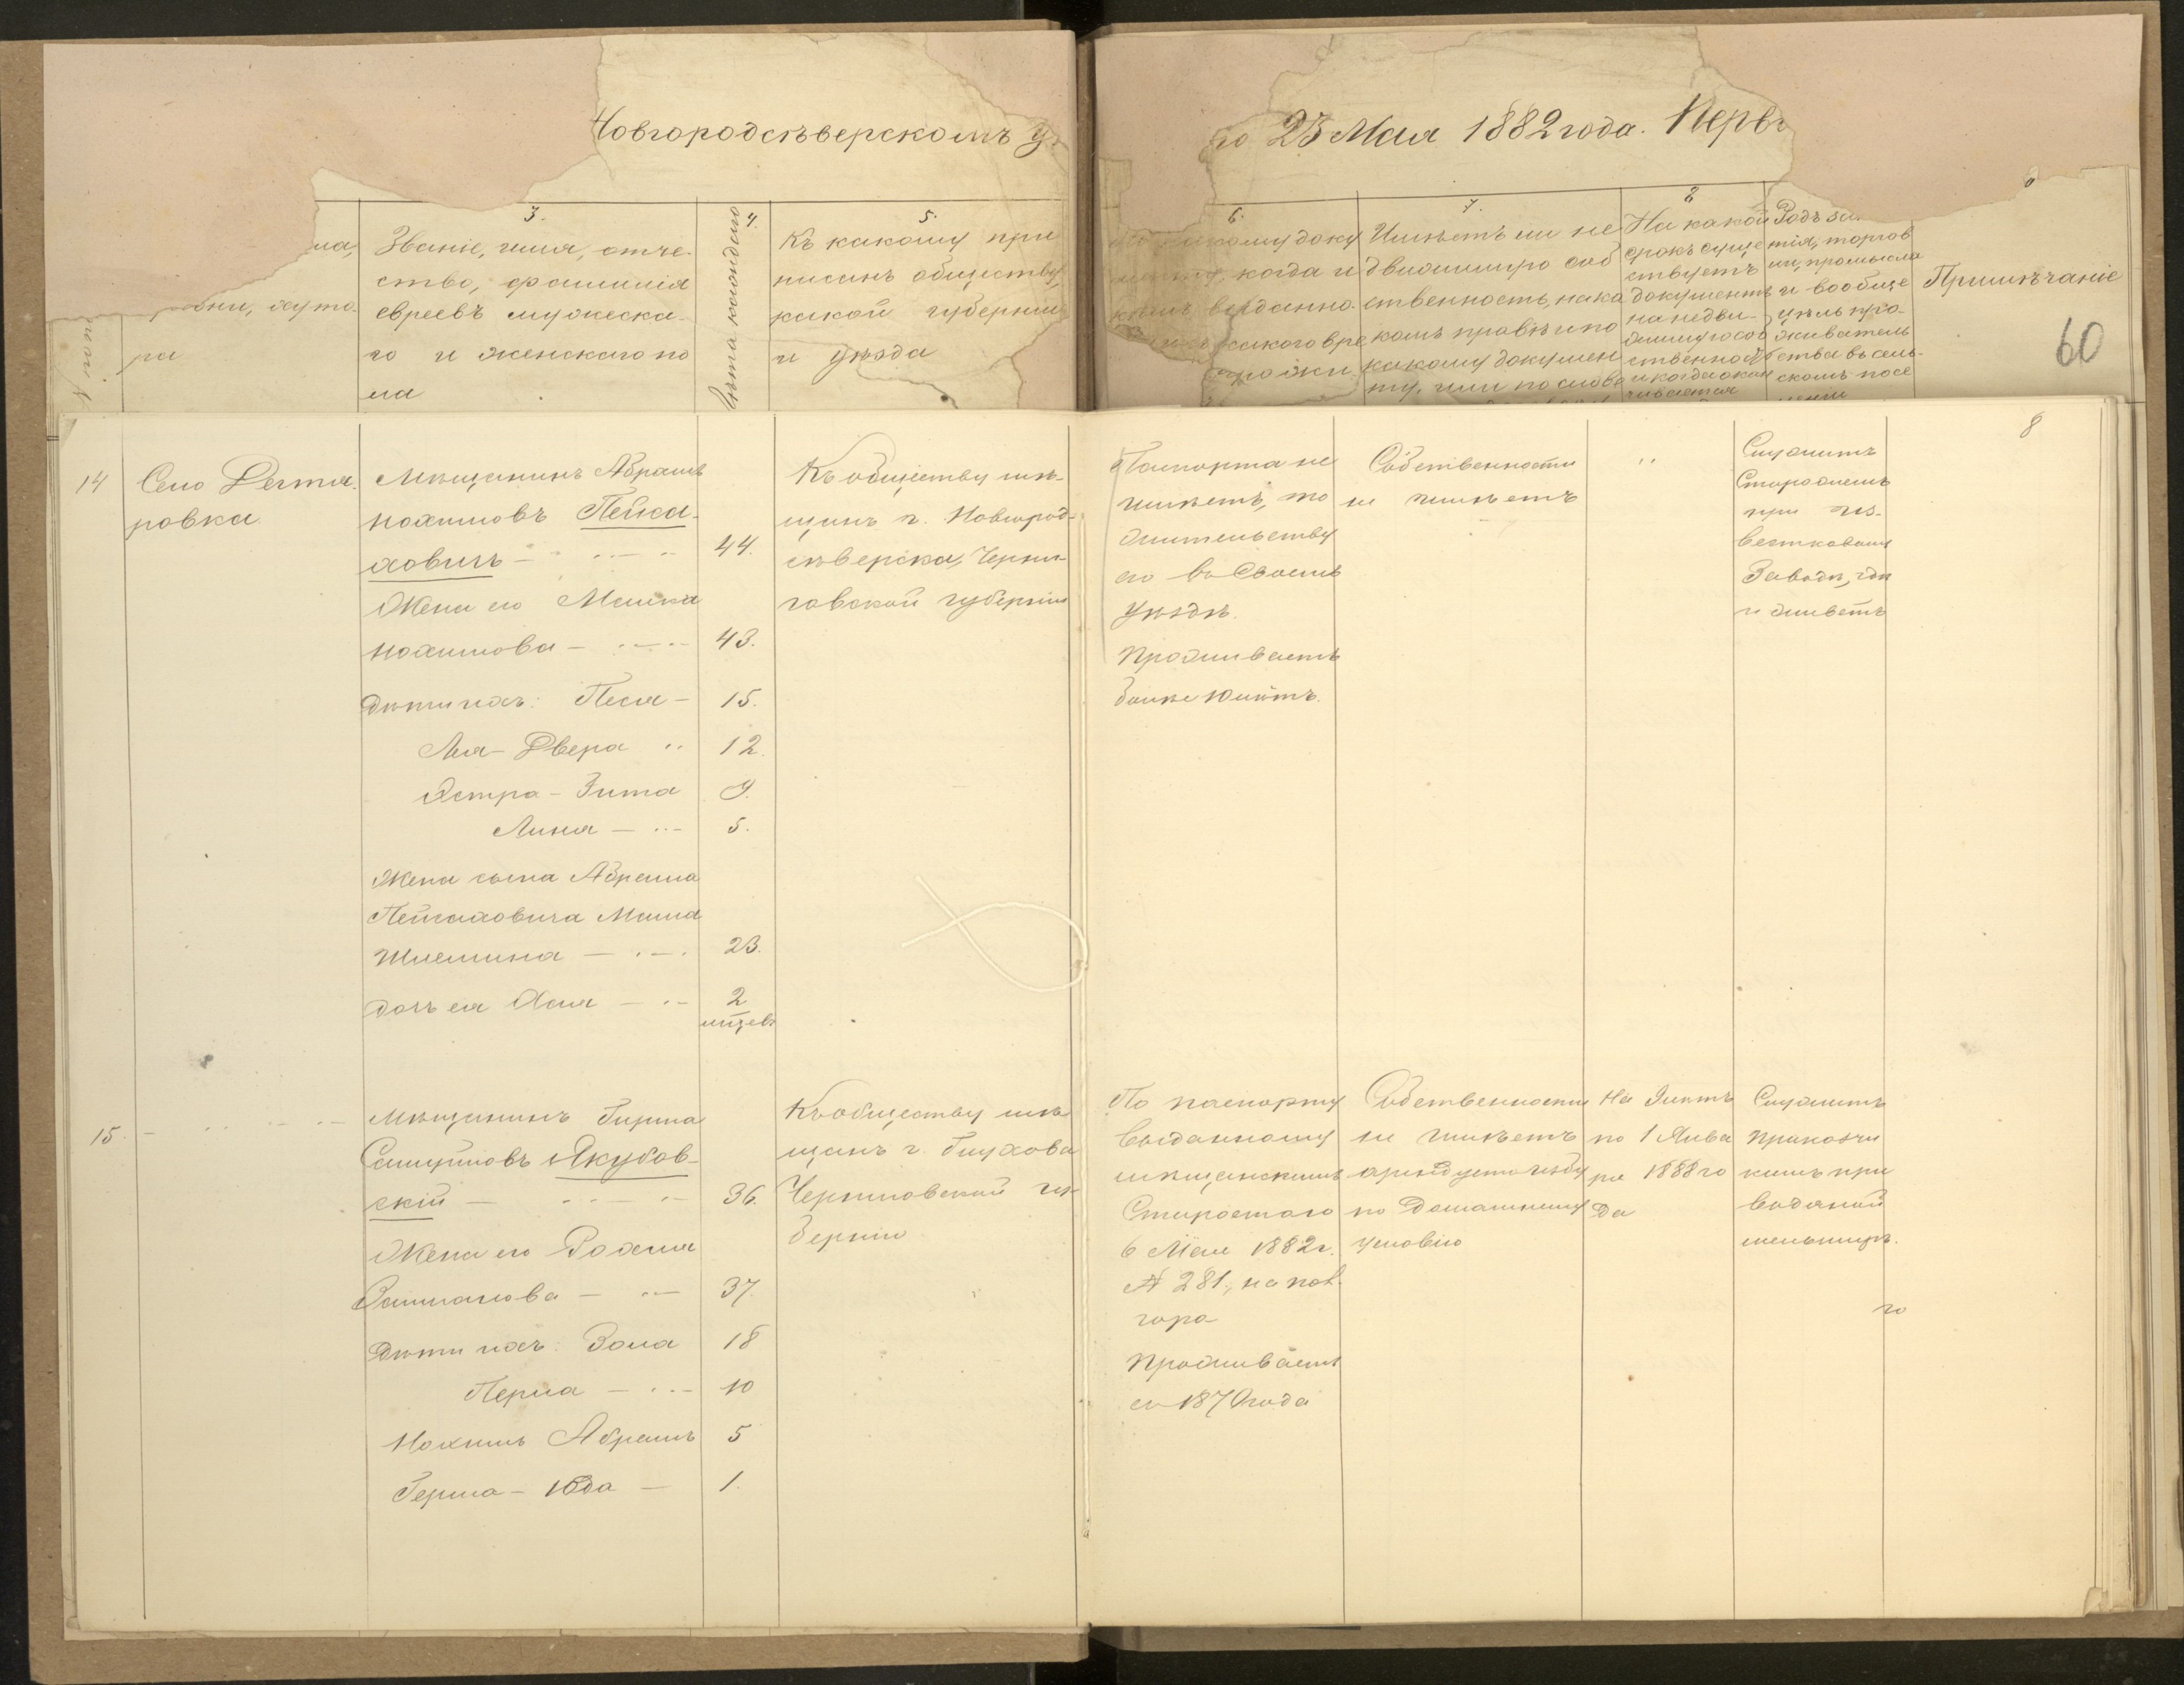 Новгородсѣверскомъ у
го 23 Мая 1882 года. Перв
ла,
вни, хуто-
ра
3.
Званіе, имя, отче-
ство, фамилія
евреевъ мужеска-
го и женскаго по
ла
4.
Лѣта каждаго
5.
Къ какому при
писанъ обществу,
какой губерніи
и уѣзда
6.
какому доку
менту, когда и
кѣмъ выданно-
какого вре
прожи
7.
Имѣетъ ли не
движимую соб
ственность, на ка
комъ правѣ и по
какому докумен
ту, или по слове
8
На какой
срокъ суще
ствуетъ
документъ
на недви-
жимую соб
ственность
и когда окан
чивается
Родъ за
тія, торгов
ли, промысла
и вообще
цѣль про-
живатель
ства въ сель-
скомъ посе
леніи
Примѣчаніе
60
8
14
Село Дегтя-
ровка
Мѣщанинъ Абрамъ
Нохимовъ Пейса-
ховичъ
44.
Жена его Машка
Нохимова
43.
Дѣти ихъ: Песя
15.
Лея-Двера
12.
Эстра-Зита
9.
Лина
5.
Жена сына Абрама
Пейсаховича Маша
Шлемина
23.
Дочь ея Хася
2
мѣсев
Къ обществу мѣ-
щанъ г. Новгород-
сѣверска, Черни-
говской губерніи
Паспорта не
имѣетъ, по
жительству
его въ своемъ
уѣздѣ.
Проживаетъ
болѣе 10 лѣтъ.
Собственности
не имѣетъ
"
Служитъ
Сторожемъ
при из-
вестковомъ
Заводѣ, гдѣ
и живетъ
15.
Мѣщанинъ Гирша
Самуйловъ Якубов-
скій
36.
Жена его Рохля
Залманова
37.
Дѣти ихъ: Зола
18
Перла
10
Нохимъ Абрамъ
5
Герша-Юда
1.
Къ обществу мѣ
щанъ г. Глухова
Черниговской гу-
берніи
По паспорту
выданному
мѣщанскимъ
Старостою
6 Мая 1882 г.
№ 281, на пол-
года
Проживаетъ
съ 1870 года
Собственности
не имѣетъ
арендуетъ избу
по Домашнему
условію
На 9 лѣтъ
по 1 Янва
ря 1888 го
да
Служитъ
приказчи
комъ при
водяной
мельницѣ.
го